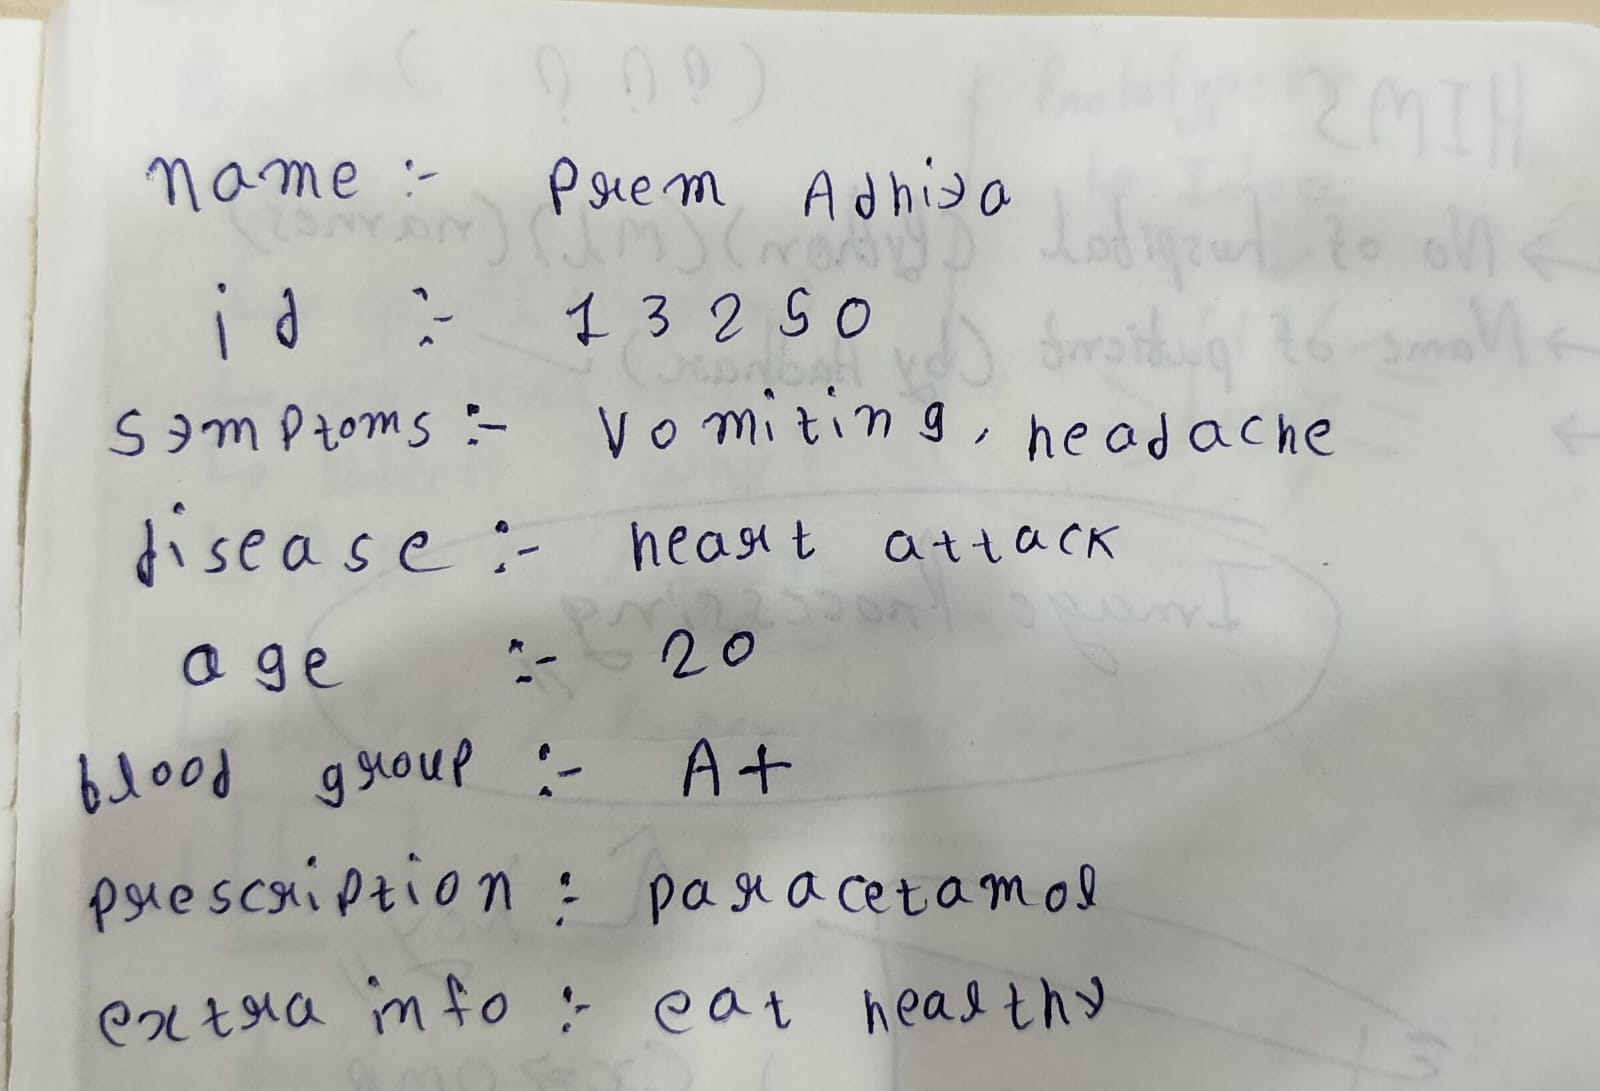 name :- Prem Adhiya
id :- 13250
symptoms :- Vomiting, headache
disease :- heart attack
age :- 20
blood group :- A+
prescription :- paracetamol
extra info :- eat healthy